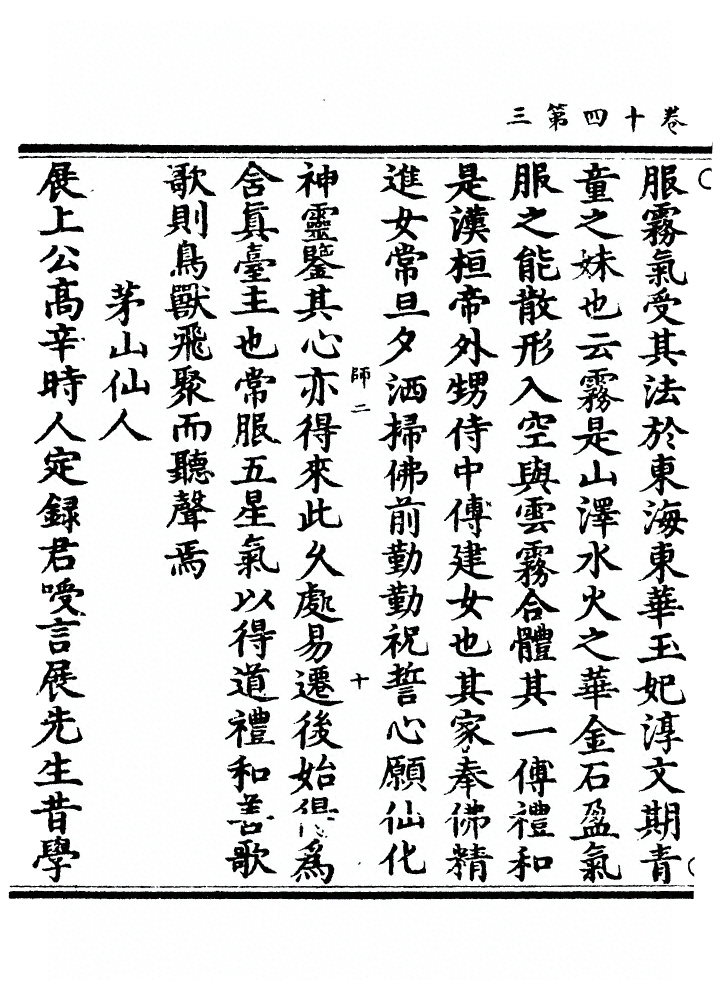 卷十四第三
服霧氣受其法於東海東華玉妃淳文期青
童之妹也云霧是山澤水火之華金石盈氣
服之能散形入空與雲霧合體其一傅禮和
是漢桓帝外甥侍中傅建女也其家奉佛精
進女常旦夕洒掃佛前勤勤祝誓心願仙化
師二 十
神靈鑒其心亦得來此久處易遷後始得為
含真臺主也常服五星氣以得道禮和善歌
歌則鳥獸飛聚而聽聲焉
茅山仙人
展上公高辛時人定録君嗳言展先生昔學